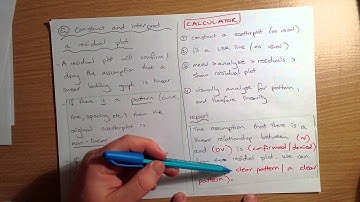 Q) Construct and interpret
a residual plot
- A residual plot will confirm /
deny the assumption that a
linear looking graph is linear.
- If there is a pattern (curve,
line, spacing etc.) then the
original scatterplot is
non-linear
CALCULATOR
① construct a scatterplot (as usual)
② fit a LSR line (as usual)
③ menu > analyse > residuals >
show residual plot
④ visually analyse for pattern,
and therefore linearity
report
The assumption that there is a
linear relationship between (IV)
and (DV) is (confirmed / denied)
residual plot, we can
clear pattern / a clear
pattern).